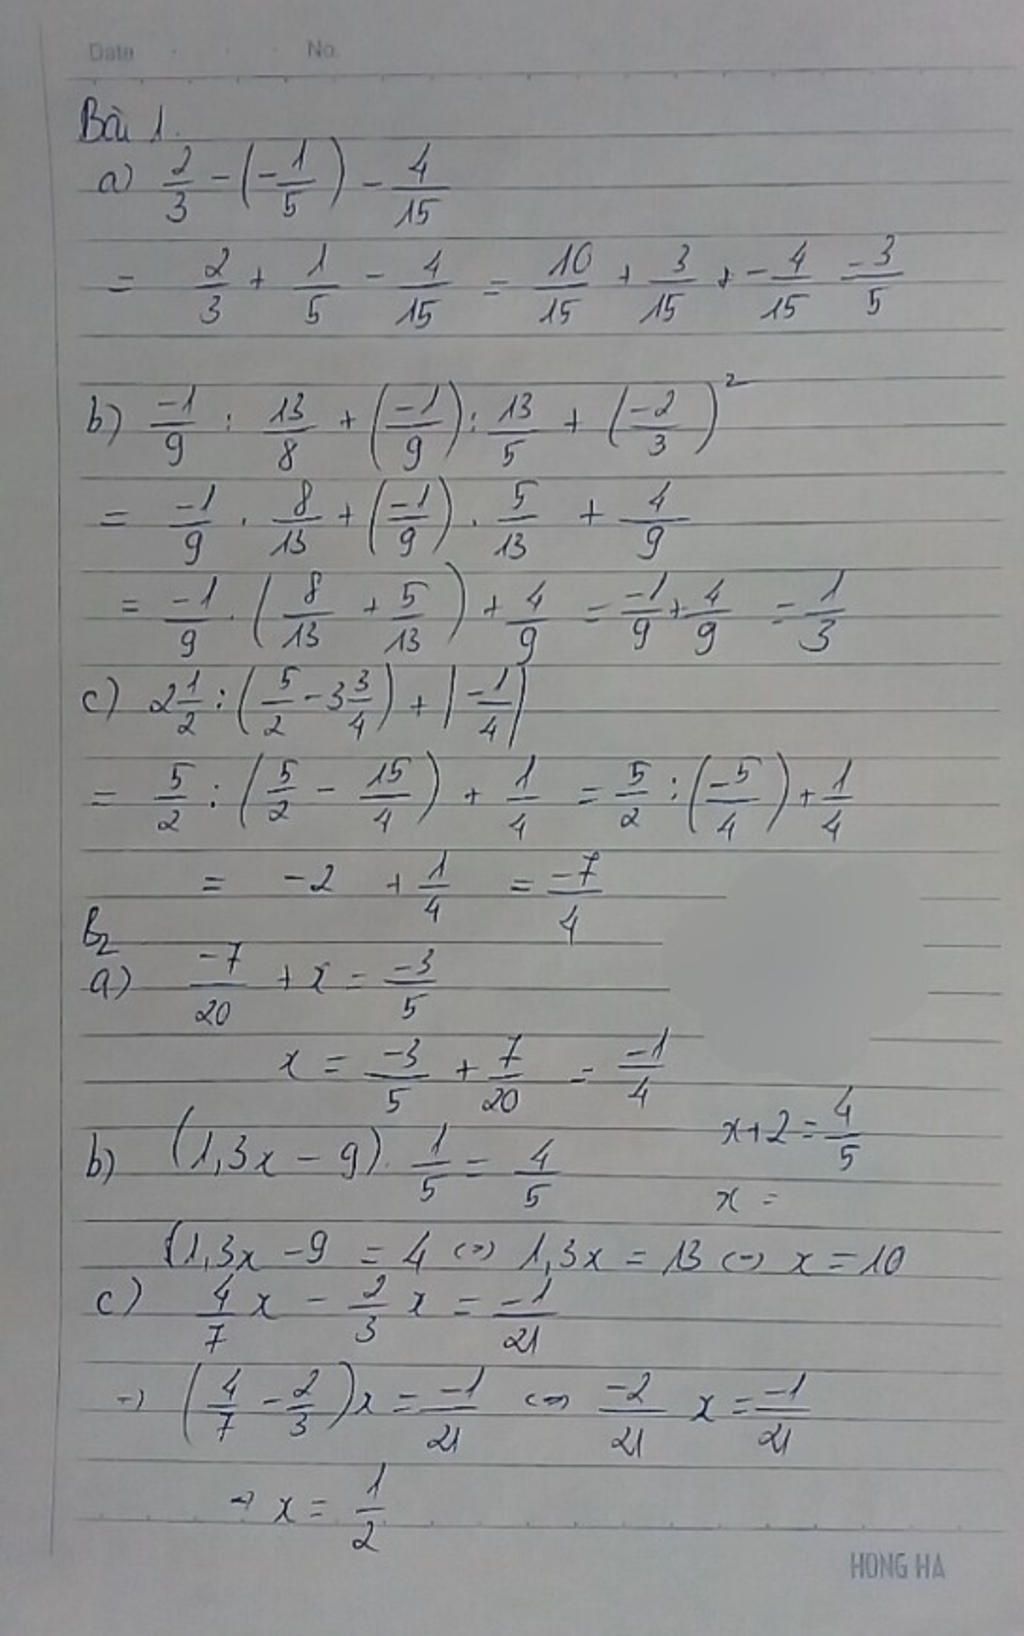 Date No.
Bài 1.
a) 2/3 - (-1/5) - 4/15
= 2/3 + 1/5 - 4/15 = 10/15 + 3/15 + -4/15 = 3/5
b) -1/9 : 13/8 + (-1/9) : 13/5 + (-2/3)²
= -1/9 . 8/13 + (-1/9) . 5/13 + 4/9
= -1/9 . (8/13 + 5/13) + 4/9 = -1/9 + 4/9 = 1/3
c) 2 1/2 : (5/2 - 3 3/4) + |-1/4|
= 5/2 : (5/2 - 15/4) + 1/4 = 5/2 : (-5/4) + 1/4
= -2 + 1/4 = -7/4
B2
a) -7/20 + x = -3/5
x = -3/5 + 7/20 = -1/4
x + 2 = 4/5
b) (1,3x - 9) . 1/5 = 4/5
x =
(1,3x - 9 = 4 <=> 1,3x = 13 <=> x = 10
c) 4/7 x - 2/3 x = -1/21
=> (4/7 - 2/3)x = -1/21 <=> -2/21 x = -1/21
=> x = 1/2
HONG HA